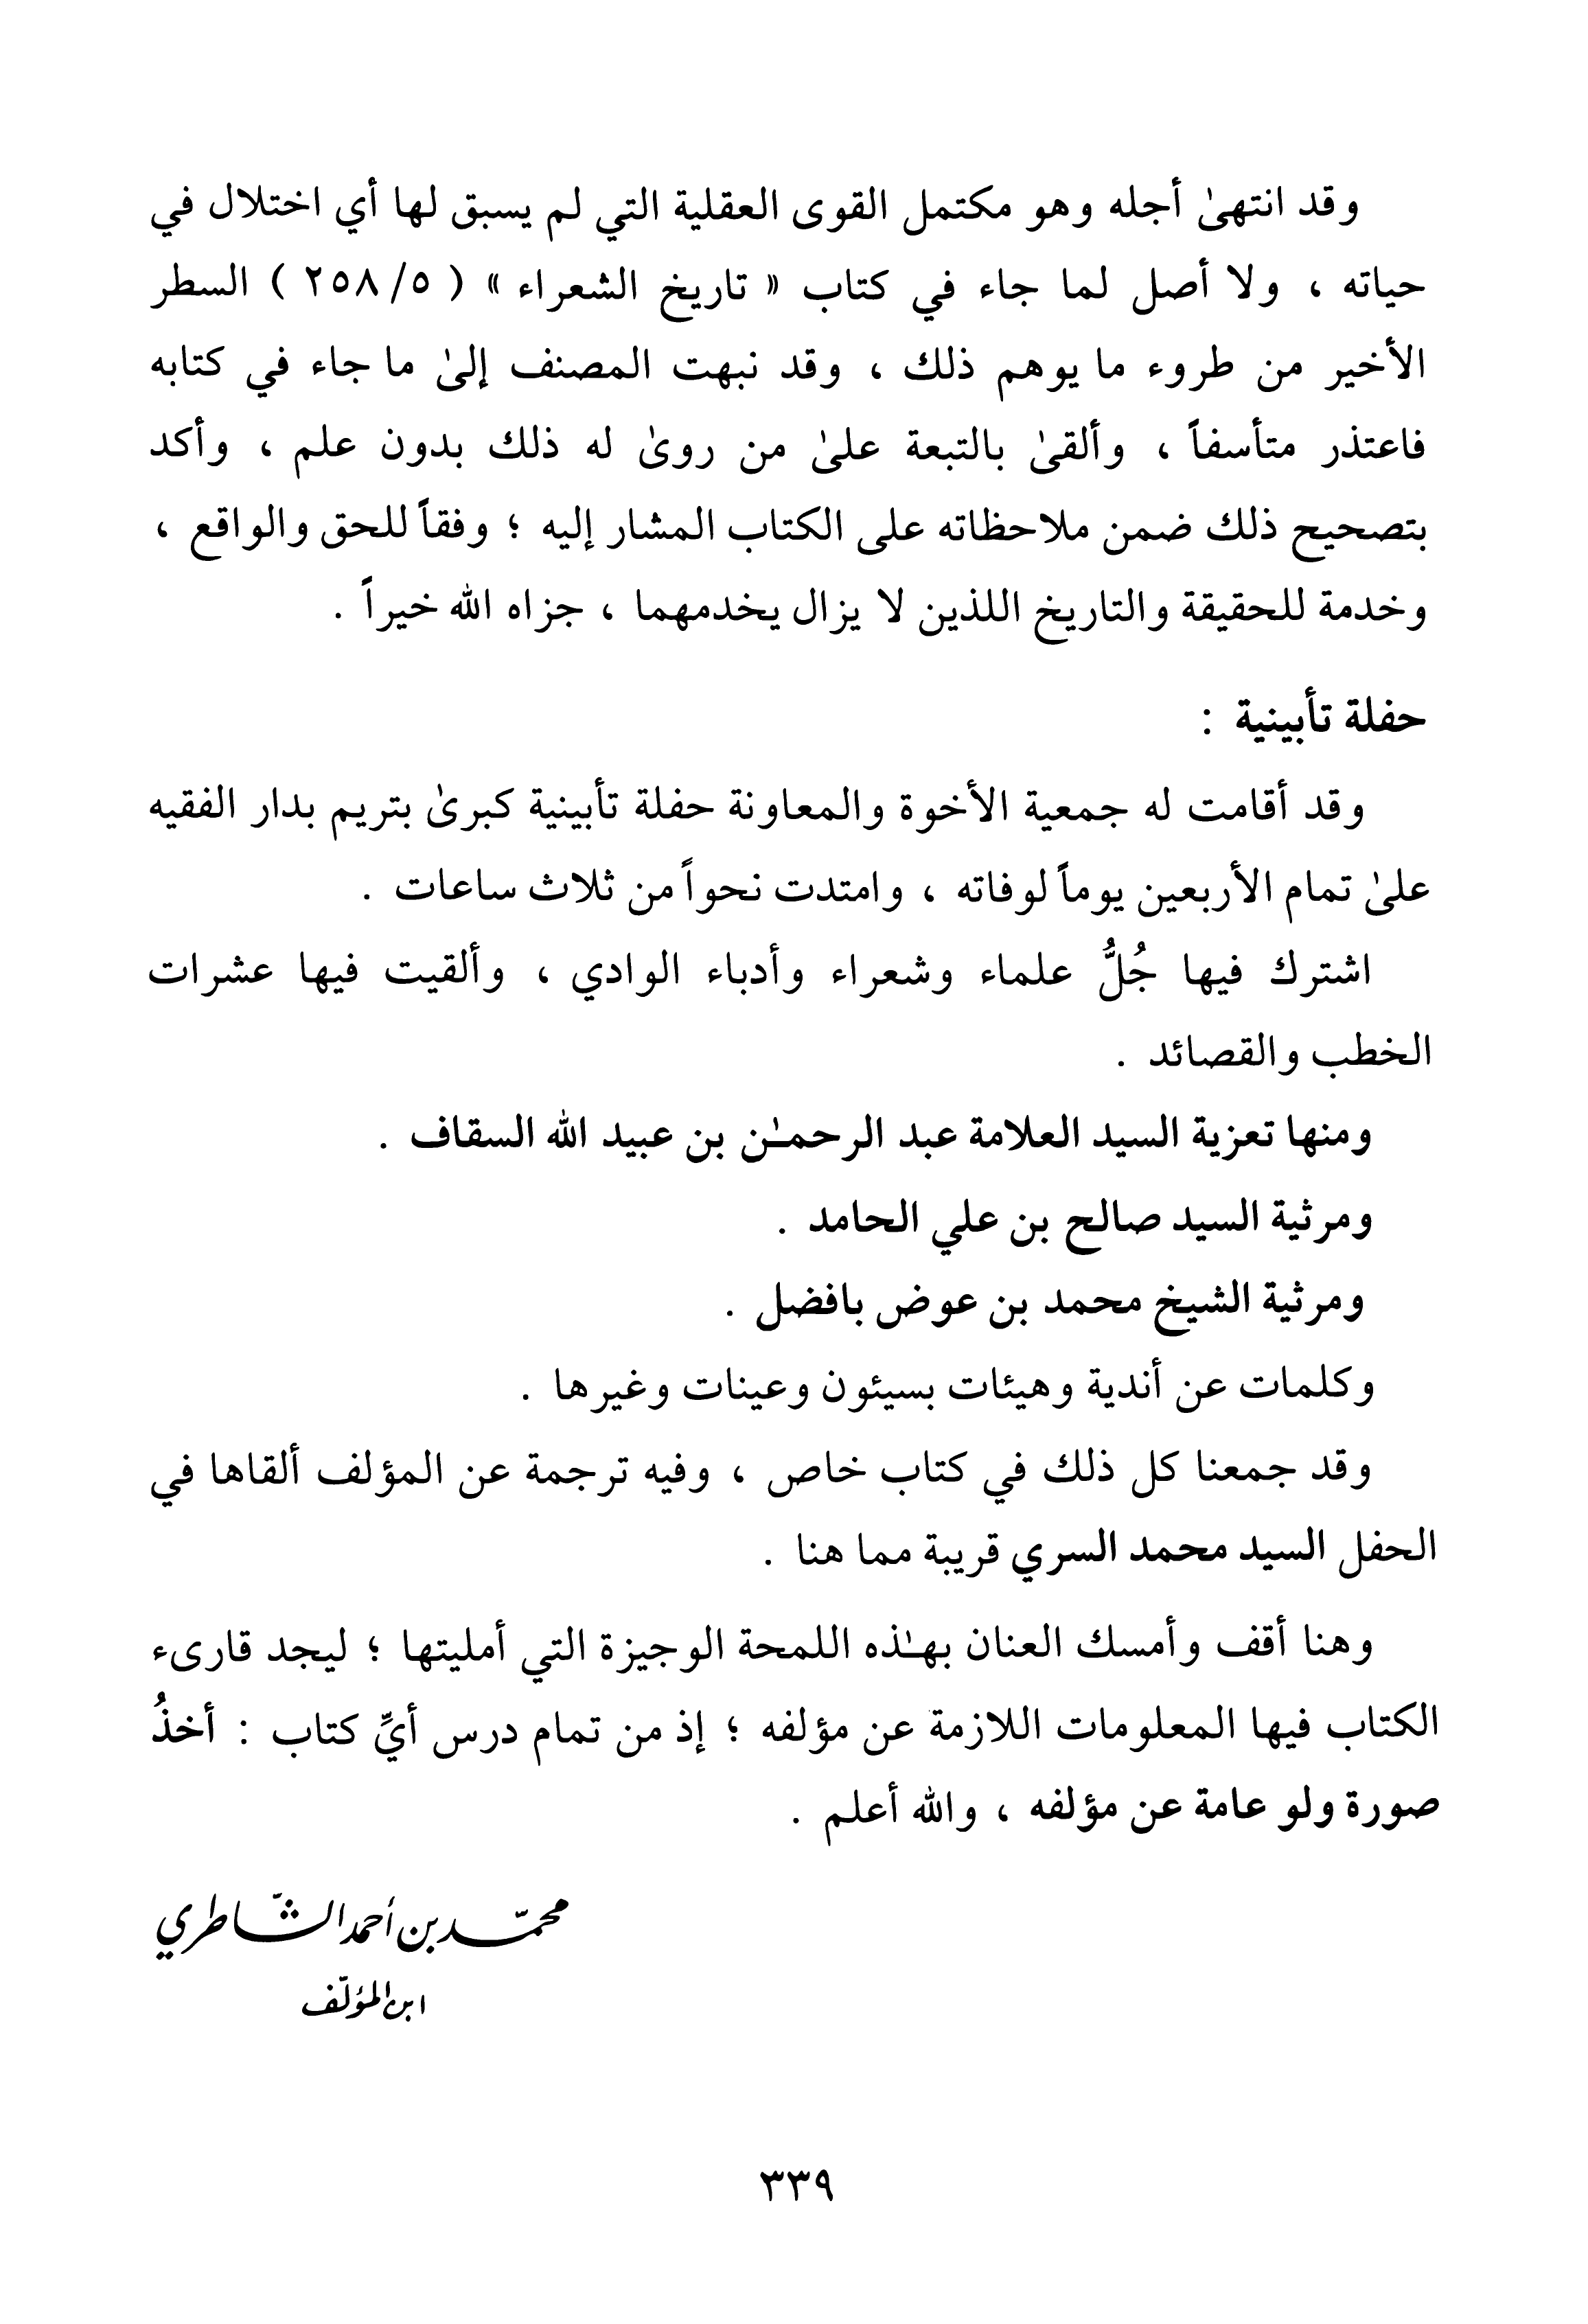 وقد انتهىٰ أجله وهو مكتمل القوى العقلية التي لم يسبق لها أي اختلال في
حياته ، ولا أصل لما جاء في كتاب « تاريخ الشعراء » ( ٥/ ٢٥٨ ) السطر
الأخير من طروء ما يوهم ذلك ، وقد نبهت المصنف إلىٰ ما جاء في كتابه
فاعتذر متأسفاً ، وألقىٰ بالتبعة علىٰ من روىٰ له ذلك بدون علم ، وأكد
بتصحيح ذلك ضمن ملاحظاته على الكتاب المشار إليه ؛ وفقاً للحق والواقع ،
وخدمة للحقيقة والتاريخ اللذين لا يزال يخدمهما ، جزاه الله خيراً .
حفلة تأبينية :
وقد أقامت له جمعية الأخوة والمعاونة حفلة تأبينية كبرىٰ بتريم بدار الفقيه
علىٰ تمام الأربعين يوماً لوفاته ، وامتدت نحواً من ثلاث ساعات .
اشترك فيها جُلُّ علماء وشعراء وأدباء الوادي ، وألقيت فيها عشرات
الخطب والقصائد .
ومنها تعزية السيد العلامة عبد الرحمـٰن بن عبيد الله السقاف .
ومرثية السيد صالح بن علي الحامد .
ومرثية الشيخ محمد بن عوض بافضل .
وكلمات عن أندية وهيئات بسيئون وعينات وغيرها .
وقد جمعنا كل ذلك في كتاب خاص ، وفيه ترجمة عن المؤلف ألقاها في
الحفل السيد محمد السري قريبة مما هنا .
وهنا أقف وأمسك العنان بهـٰذه اللمحة الوجيزة التي أمليتها ؛ ليجد قارىء
الكتاب فيها المعلومات اللازمة عن مؤلفه ؛ إذ من تمام درس أيِّ كتاب : أخذُ
صورة ولو عامة عن مؤلفه ، والله أعلم .
محمّد بن أحمد الشّاطري
ابن المؤلّف
٣٣٩